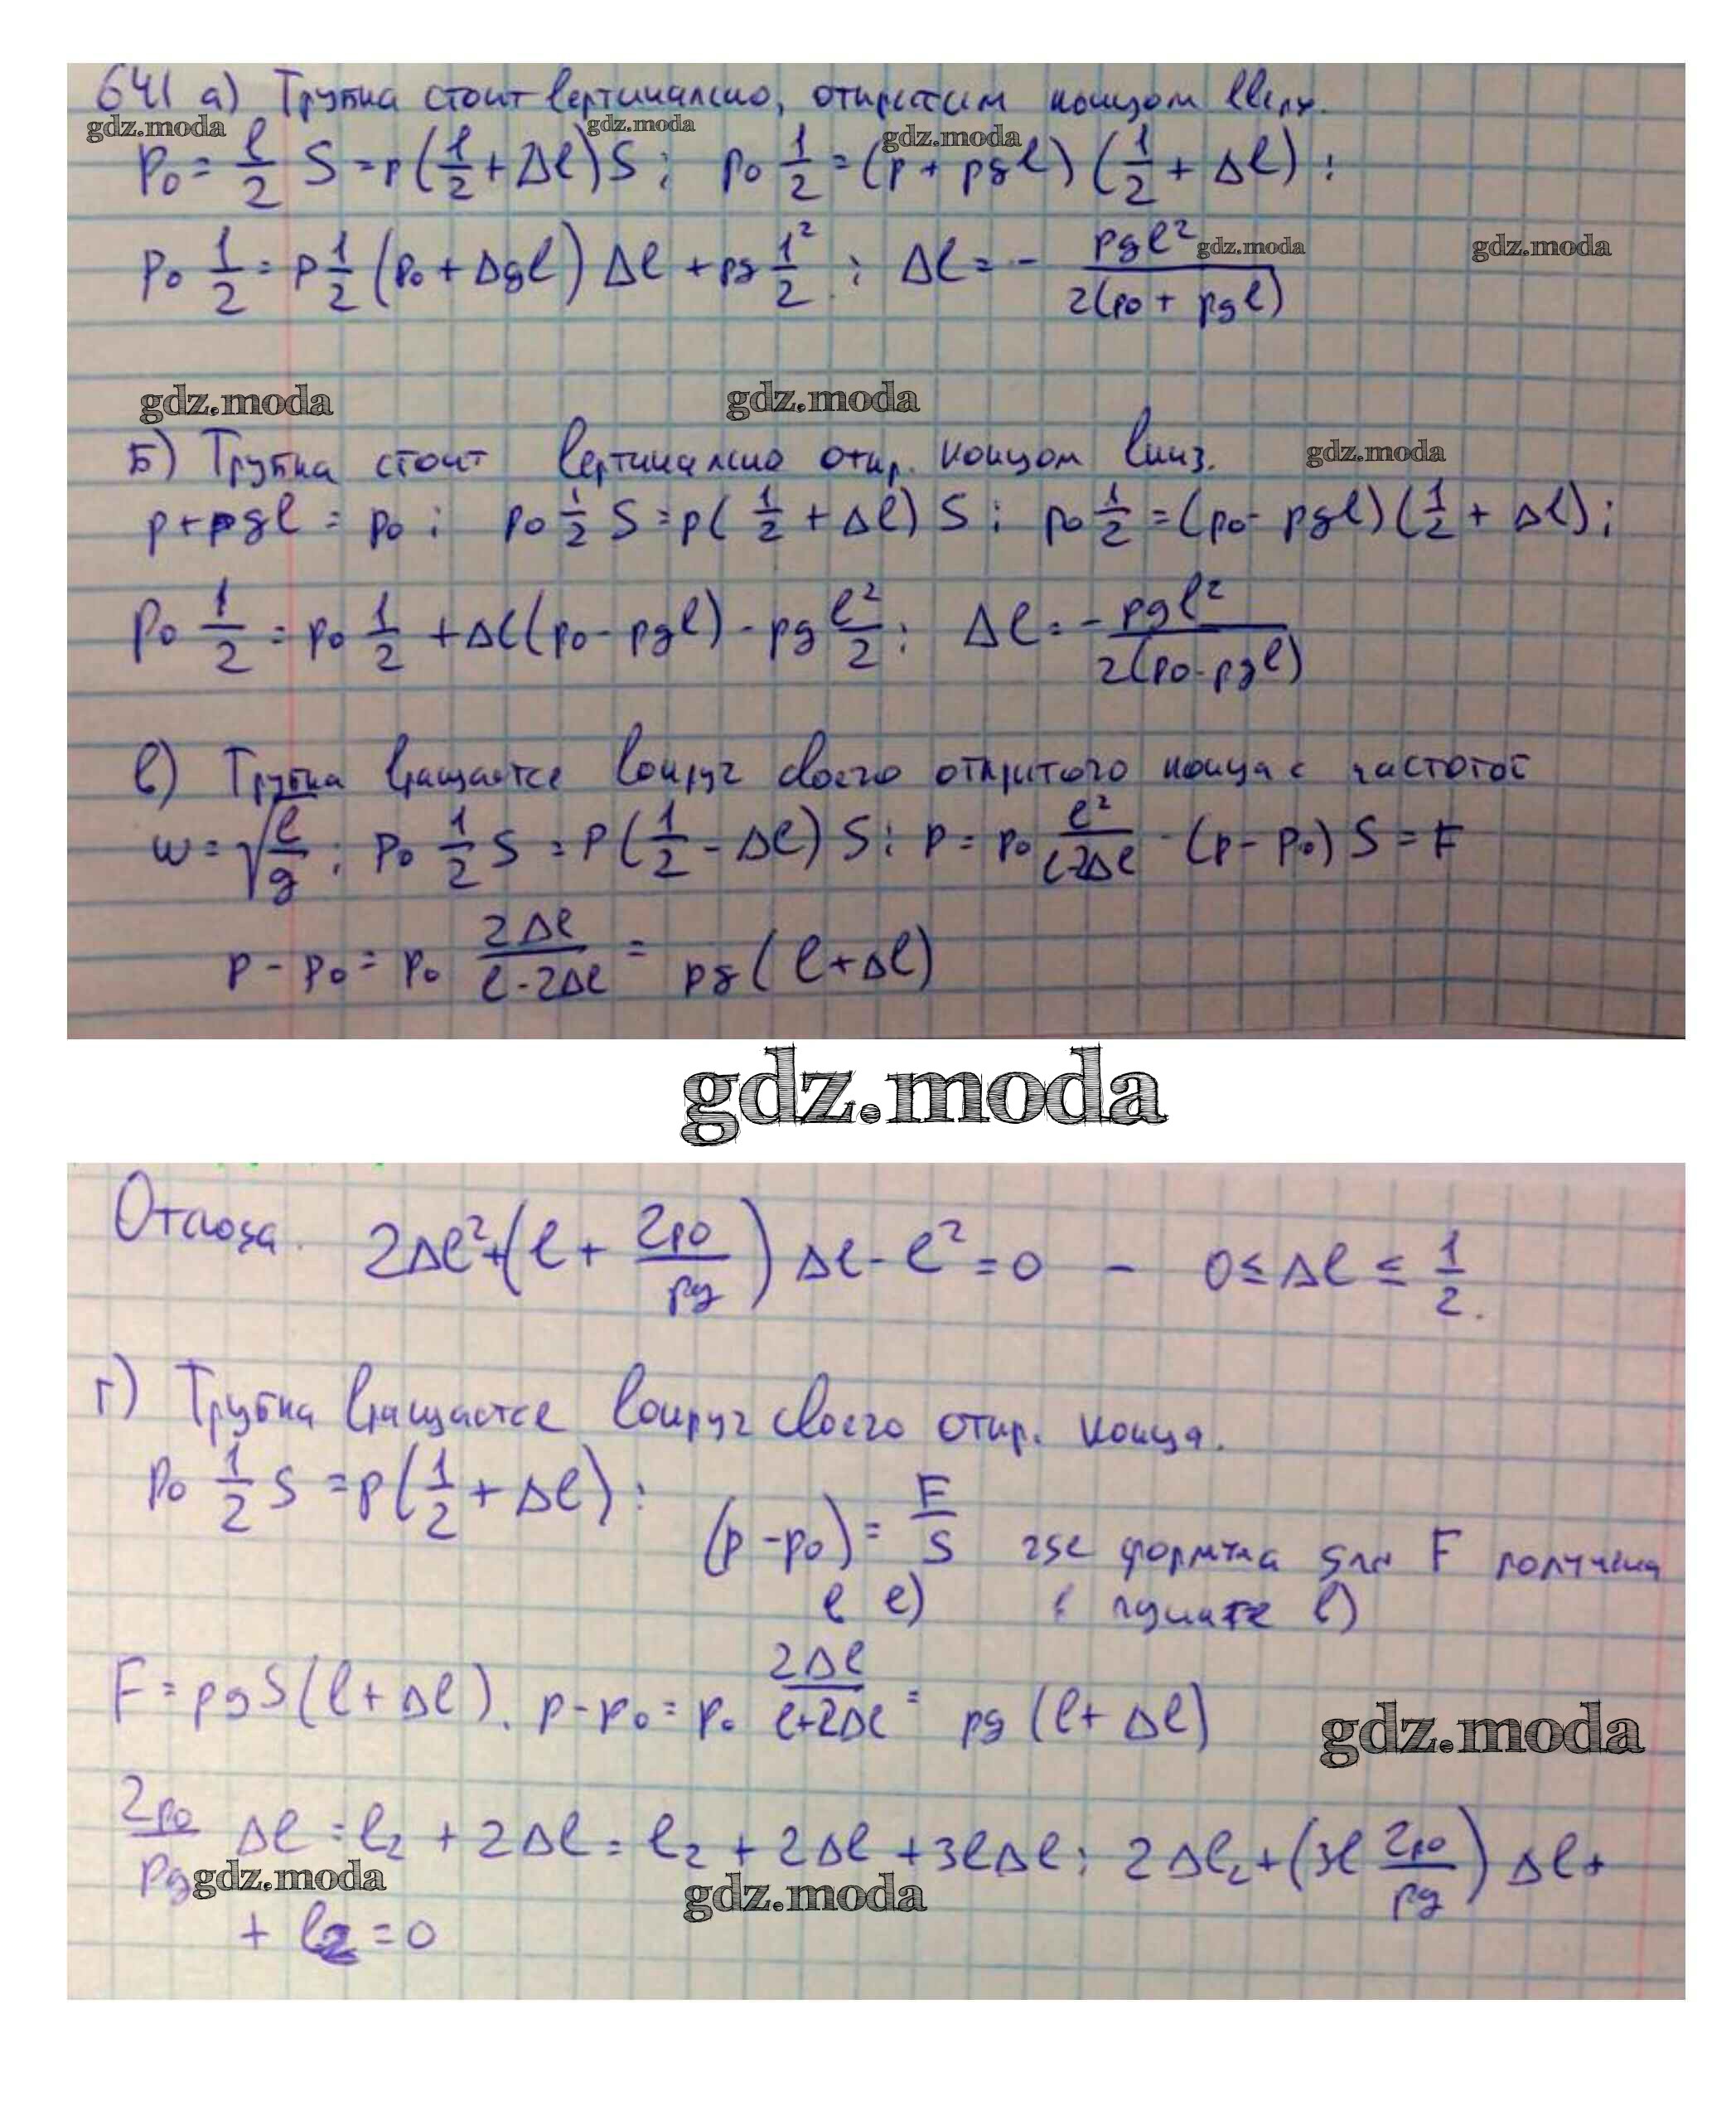 641 а) Трубка стоит вертикально, открытым концом вверх.
gdz.moda gdz.moda gdz.moda
p₀ = l/2 S = p(l/2 + Δl)S; p₀ 1/2 = (p + ρgl)(1/2 + Δl);
p₀ 1/2 = p 1/2 (p₀ + Δgl) Δl + ρg 1²/2; Δl = - ρgl²/2(p₀ + ρgl)
gdz.moda gdz.moda
gdz.moda gdz.moda
Б) Трубка стоит вертикально откр. концом вниз. gdz.moda
p + ρgl = p₀; p₀ 1/2 S = p(1/2 + Δl)S; p₀ 1/2 = (p₀ - ρgl)(1/2 + Δl);
p₀ 1/2 = p₀ 1/2 + Δl(p₀ - ρgl) - ρg l²/2; Δl = - ρgl²/2(p₀ - ρgl)
в) Трубка вращается вокруг своего открытого конца с частотой
ω = √(l/g); p₀ 1/2 S = p(1/2 - Δl)S; p = p₀ l²/(l-2Δl) · (p - p₀)S = F
p - p₀ = p₀ 2Δl/(l - 2Δl) = ρg(l + Δl)
gdz.moda
Отсюда. 2Δl² + (l + 2p₀/ρg) Δl - l² = 0 - 0 ≤ Δl ≤ 1/2.
г) Трубка вращается вокруг своего откр. конца.
p₀ 1/2 S = p(1/2 + Δl); (p - p₀) = F/S где формула для F получена
в е) в пункте в)
F = ρgS(l + Δl). p - p₀ = p₀ 2Δl/(l + 2Δl) = ρg(l + Δl)
gdz.moda
2p₀/ρg Δl = l₂ + 2Δl = l₂ + 2Δl + 3lΔl; 2Δl₂ + (3l 2p₀/ρg) Δl +
gdz.moda gdz.moda
+ l₂ = 0